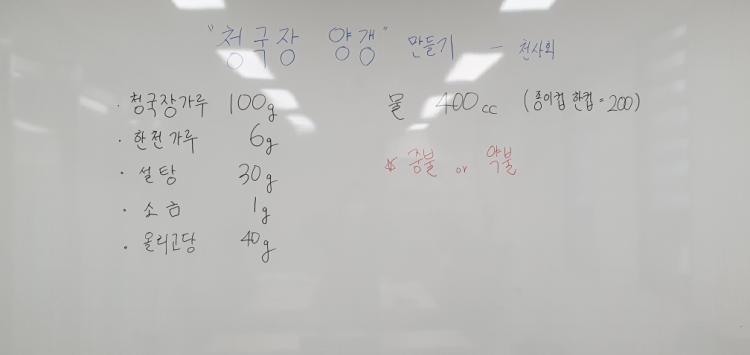 "청국장 양갱" 만들기 - 천사회
· 청국장가루 100g
· 한천가루 6g
· 설탕 30g
· 소금 1g
· 올리고당 40g
물 400cc (종이컵 한컵=200)
☆ 중불 or 약불